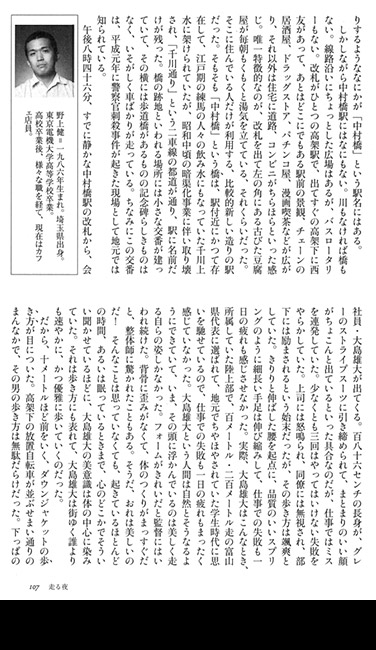 りするようななにかが「中村橋」という駅名にはある。
　しかしながら中村橋駅にはなにもない。川もなければ橋も
ない。線路沿いにちょっとした広場はあるが、バスロータリ
ーもない。改札がひとつの高架駅で、出てすぐの高架下に西
友があって、あとはどこにでもある駅前の景観、チェーンの
居酒屋、ドラッグストア、パチンコ屋、漫画喫茶などが広が
り、それ以外は住宅に道路、コンビニがちらほらといった感
じ。唯一特徴的なのが、改札を出て左の角にある古びた豆腐
屋が毎朝もくもくと湯気を立てている、それくらいだった。
そこに住んでいる人だけが利用する、比較的新しい造りの駅
だった。そもそも「中村橋」という橋は、駅付近にかつて存
在して、江戸期の練馬の人々の飲み水にもなっていた千川上
水に架けられていたが、昭和中頃の暗渠化事業に伴い取り壊
され、「千川通り」という二車線の都道が通り、駅に名前だ
けが残った。橋の跡地といわれる場所には小さな交番が建っ
ていて、その横には歩道橋があるものの記念碑らしきものは
なく、いそがしく車ばかりが走っている。ちなみにこの交番
は、平成元年に警察官刺殺事件が起きた現場として地元では
知られている。
　午後八時四十六分、すでに静かな中村橋駅の改札から、会
野上健＝一九八六年生まれ。埼玉県出身。
東京電機大学高等学校卒業。
高校卒業後、様々な職を経て、現在はカフ
ェ店員。
社員・大島雄大が出てくる。百八十六センチの長身が、グレ
ーのストライプスーツに引き締められて、まとまりのいい顔
がちょこんと出ているといった具合なのだが、仕事ではミス
を連発していた。少なくとも三回はやってはいけない失敗を
やらかしていた。上司には怒鳴られ、同僚には無視され、部
下には励まされるという始末だったが、その歩き方は颯爽と
していた。きりりと伸ばした腰を起点に、品質のいいスプリ
ングのように細長い手足は伸び縮みして、仕事での失敗も一
日の疲れも感じさせなかった。実際、大島雄大はこんなとき、
所属していた陸上部で、百メートル・二百メートル走の富山
県代表に選ばれて、地元でちやほやされていた学生時代に思
いを馳せているので、仕事での失敗も一日の疲れもまったく
感じていなかった。大島雄大という人間は自然とそうなるよ
うにできていて、いま、その頭に浮かんでいるのは美しく走
る自らの姿しかなかった。フォームがきれいだと監督にはい
われ続けた。背骨に歪みがなくて、体のつくりがまっすぐだ
と、整体師に驚かれたこともある。そうだ、おれは美しいの
だ！　そんなことは思っていなくても、起きているほとんど
の時間、あるいは眠っているときまで、心のどこかでそうい
い聞かせているほどに、大島雄大の美意識は体の中心に染み
ていた。それは歩き方にも表れて、大島雄大は街ゆく誰より
も速やかに、かつ優雅に歩いていくのだった。
　だから、十メートルほど前をいく、ダウンジャケットの歩
き方が目についた。高架下の放置自転車が並ぶせまい通りの
まんなかで、その男の歩き方は無駄だらけだった。下っぱの
107　走る夜